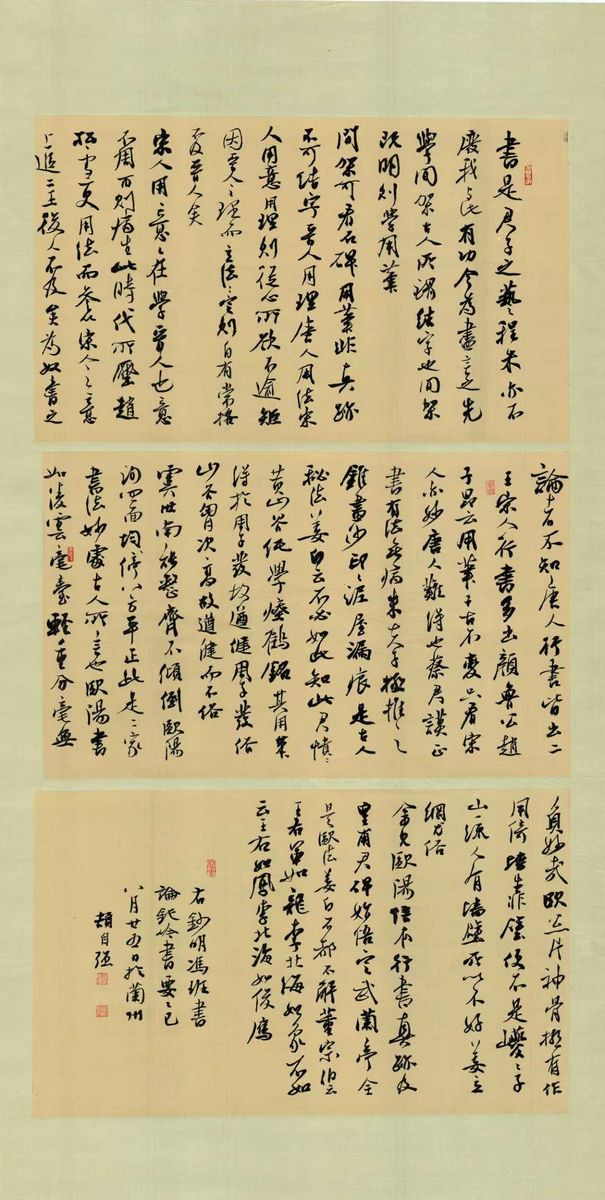 書是君子之藝程朱亦不
廢我於此有功今為盡言之先
學間架古人所謂結字也間架
既明則學用筆
間架可看石碑用筆非真跡
不可結字晉人用理唐人用法宋
人用意用理則從心所欲不逾矩
因晉人之理而立法法定則自有常格
不及晉人矣
宋人用意意在學晉人也意
不周市則病生此時代所壓趙
松雪更用法而參以宋人之意
上追二王後人不及矣為奴書之
論者不知唐人行書皆出二
王宋人行書多出顏魯公趙
子昂云用筆千古不變只看宋
人亦妙唐人難得也蔡君謨正
書有法無病朱夫子極推之
錐畫沙印印泥屋漏痕是古人
秘法姜白石云不必如此知此君憒憒
黃山谷純學瘞鶴銘其用筆
得於周子發故遒健周子發俗
山谷胸次高故遒健而不俗
虞世南能整齊不傾倒歐陽
詢四面均停八方平正此是二家
書法妙處古人所言也歐陽書
如凌雲臺輕重分毫無
負妙哉歐公片神骨
用倚牆靠壁便不是
山一流人有牆壁所以不好姜立
綱尤俗
余見歐陽信本行書真跡及
皇甫君碑始悟定武蘭亭全
是歐法姜白石都不解董宗伯云
王右軍如龍李北海如象不如
云王右軍如鳳李北海如俊鷹
右鈔明馮班書
論鈍吟書要之已
八月廿五日於蘭州
趙自強